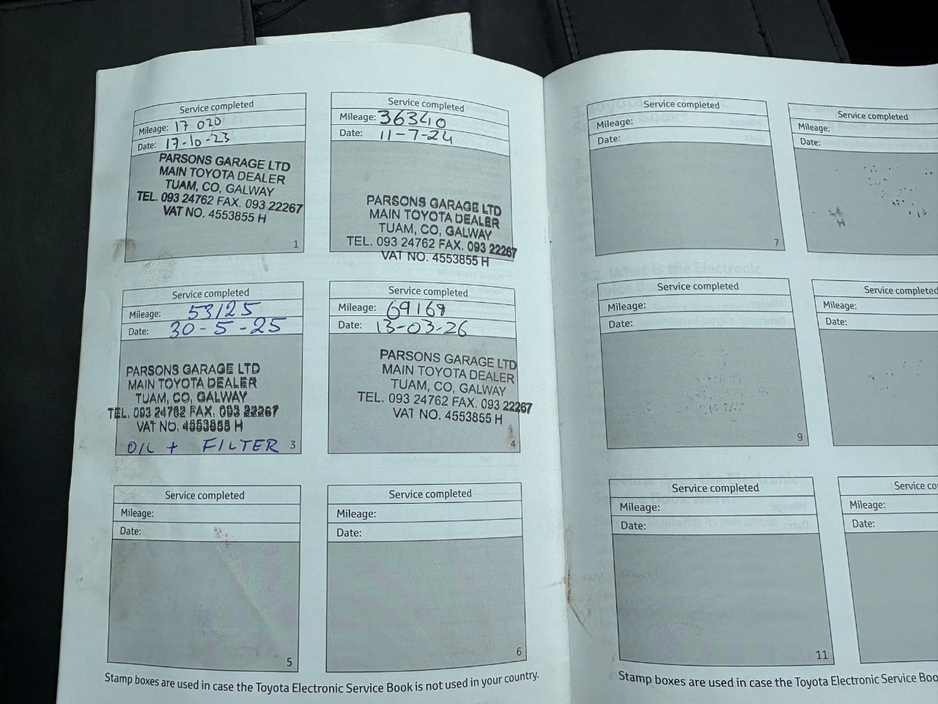 Service completed
Mileage: 17 020
Date: 17-10-23
PARSONS GARAGE LTD
MAIN TOYOTA DEALER
TUAM, CO, GALWAY
TEL. 093 24762 FAX. 093 22267
VAT NO. 4553855 H
1
Service completed
Mileage: 36340
Date: 11-7-24
PARSONS GARAGE LTD
MAIN TOYOTA DEALER
TUAM, CO, GALWAY
TEL. 093 24762 FAX. 093 22267
VAT NO. 4553855 H
Service completed
Mileage: 53125
Date: 30-5-25
PARSONS GARAGE LTD
MAIN TOYOTA DEALER
TUAM, CO, GALWAY
TEL. 093 24762 FAX. 093 22267
VAT NO. 4553855 H
OIL + FILTER
3
Service completed
Mileage: 69168
Date: 13-03-26
PARSONS GARAGE LTD
MAIN TOYOTA DEALER
TUAM, CO, GALWAY
TEL. 093 24762 FAX. 093 22267
VAT NO. 4553855 H
4
Service completed
Mileage:
Date:
5
Service completed
Mileage:
Date:
6
Stamp boxes are used in case the Toyota Electronic Service Book is not used in your country.
Service completed
Mileage:
Date:
7
Service completed
Mileage:
Date:
Service completed
Mileage:
Date:
9
Service completed
Mileage:
Date:
Service completed
Mileage:
Date:
11
Service co
Mileage:
Date:
Stamp boxes are used in case the Toyota Electronic Service Boo